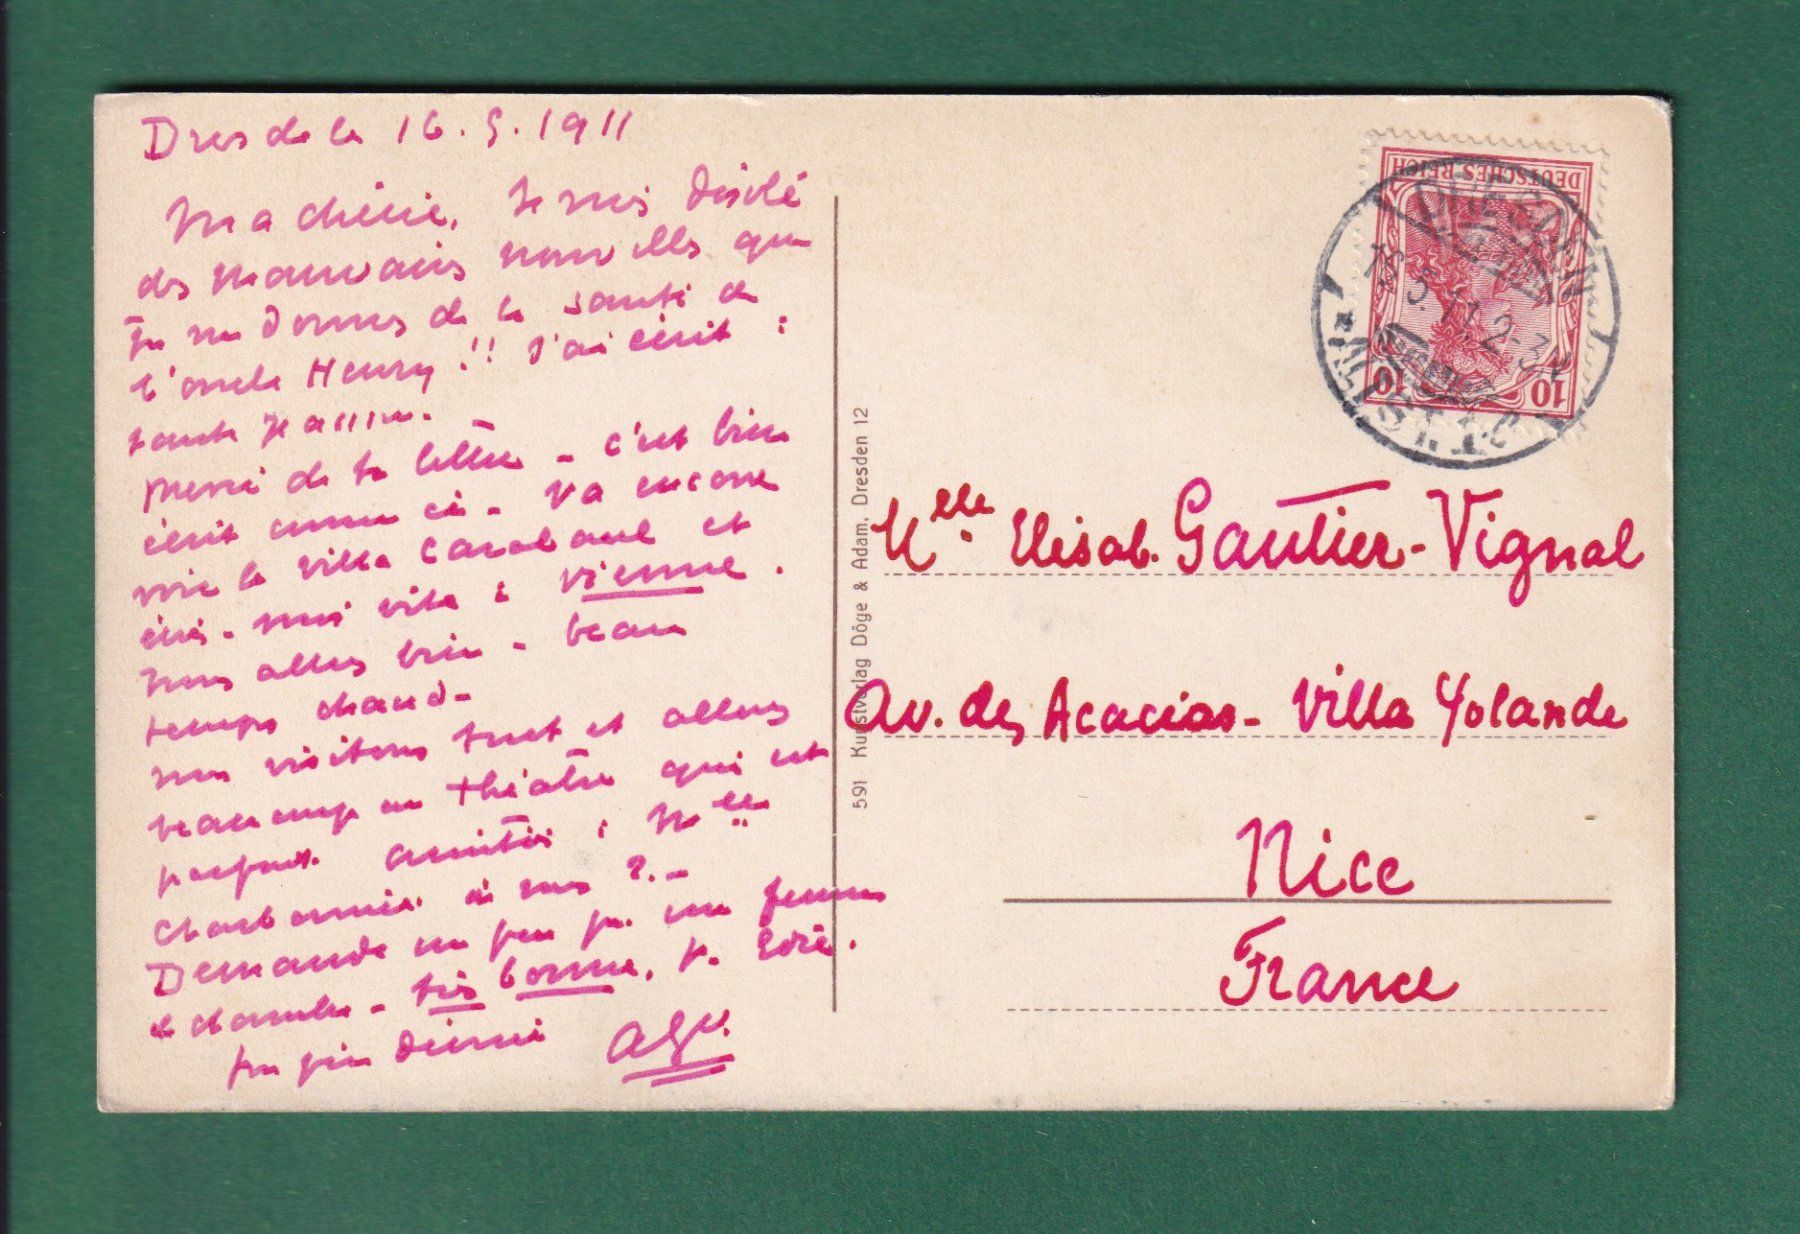 Dresde le 16.5.1911
Ma chérie, Je suis désolé
des mauvaises nouvelles que
tu me donnes de la santé de
l'oncle Henry!! J'ai écrit à
tante Jeanne.
Merci de ta lettre - c'est bien
écrit comme ça - Va encore
voir la villa et
écris-moi vite à Vienne.
Nous allons bien - beau
temps chaud -
nous visitons tout et allons
beaucoup au théâtre qui est
parfait. amitiés à Mlle
Charbonnier à vous ?. -
Demande un peu pr. une femme
de chambre - très bonne, p. Edié.
ton
AGV.
Mlle. Elisab. Gautier-Vignal
Av. des Acacias - Villa Yolande
Nice
France
591 Kunstverlag Döge & Adam, Dresden 12
DEUTSCHES REICH
10 10
DRESDEN
ALTST.
16.5.11.2-3